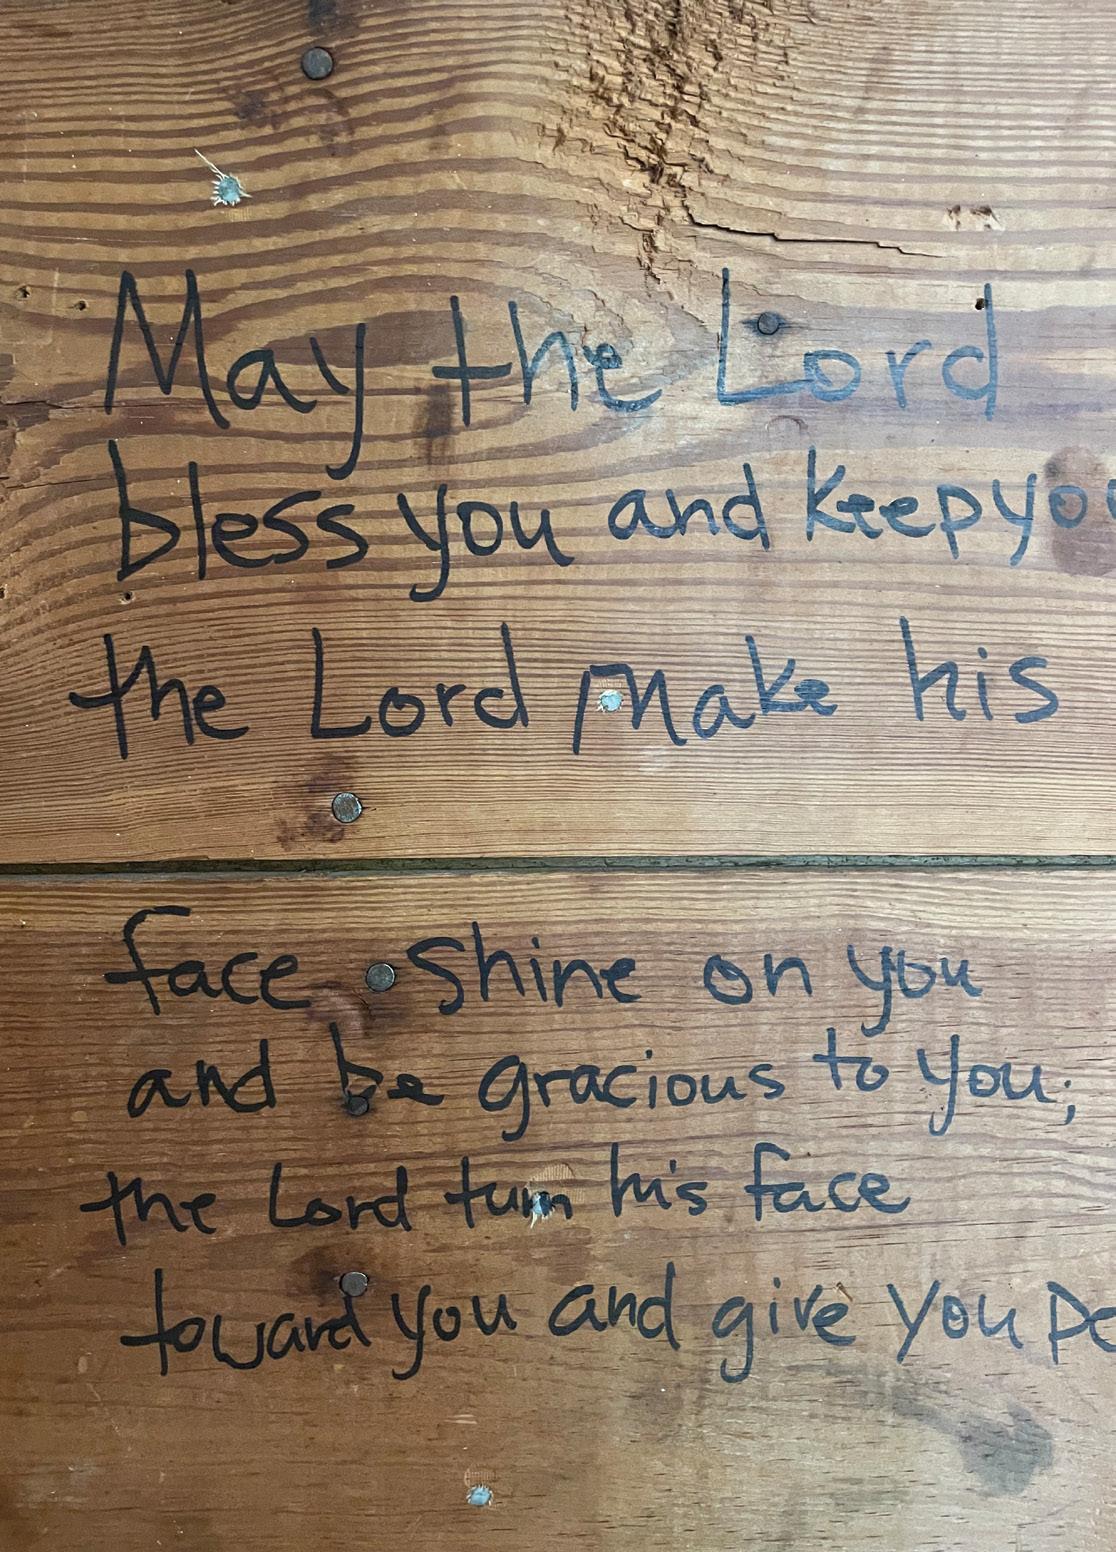 May the Lord
bless you and keep yo
the Lord make his
face shine on you
and be gracious to you;
the Lord turn his face
toward you and give you pe